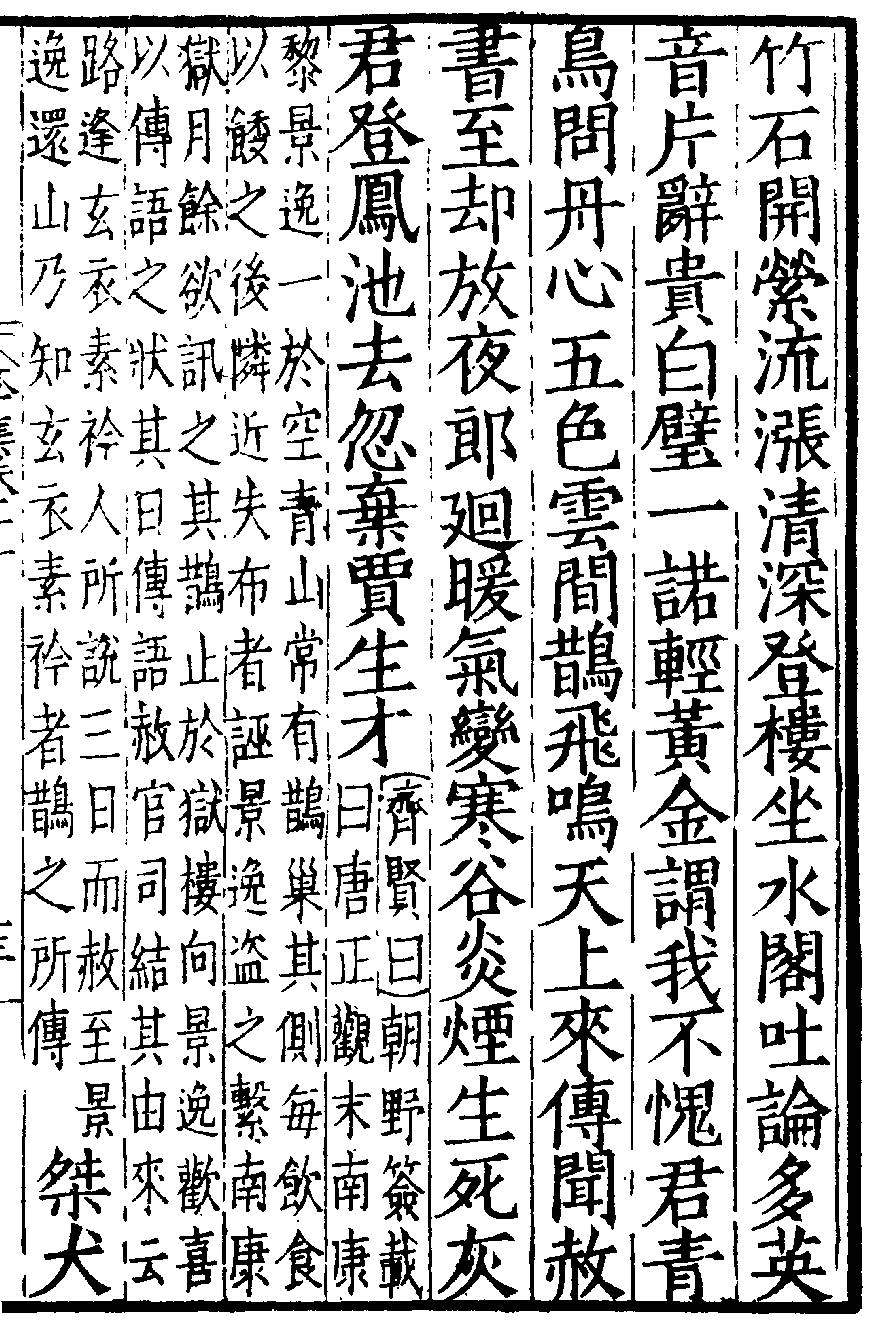 竹石開縈流漲清深登樓坐水閣吐論多英
音片辭貴白璧一諾輕黃金謂我不愧君青
鳥問丹心五色雲間鵲飛鳴天上來傳聞赦
書至却放夜郎廻暖氣變寒谷炎煙生死灰
君登鳳池去忽棄賈生才
齊賢曰朝野簽載
曰唐正觀末南康
黎景逸一於空青山常有鵲巢其側每飲食
以餧之後隣近失布者誣景逸盜之繫南康
獄月餘欲訊之其鵲止於獄樓向景逸歡喜
以傳語之狀其日傳語赦官司結其由來云
路逢玄衣素衿人所說三日而赦至景
逸還山乃知玄衣素衿者鵲之所傳
桀犬